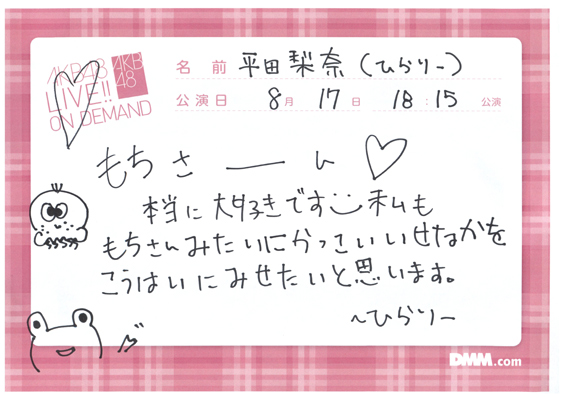 AKB48
LIVE!!
ON DEMAND
AKB
48
名 前 平田梨奈(ひらりー)
公演日 8月 17日 18:15 公演
もちさーーん♡
本当に大好きです 私も
もちさんみたいにかっこいいせなかを
こうはいにみせたいと思います。
~ひらりー
DMM.com